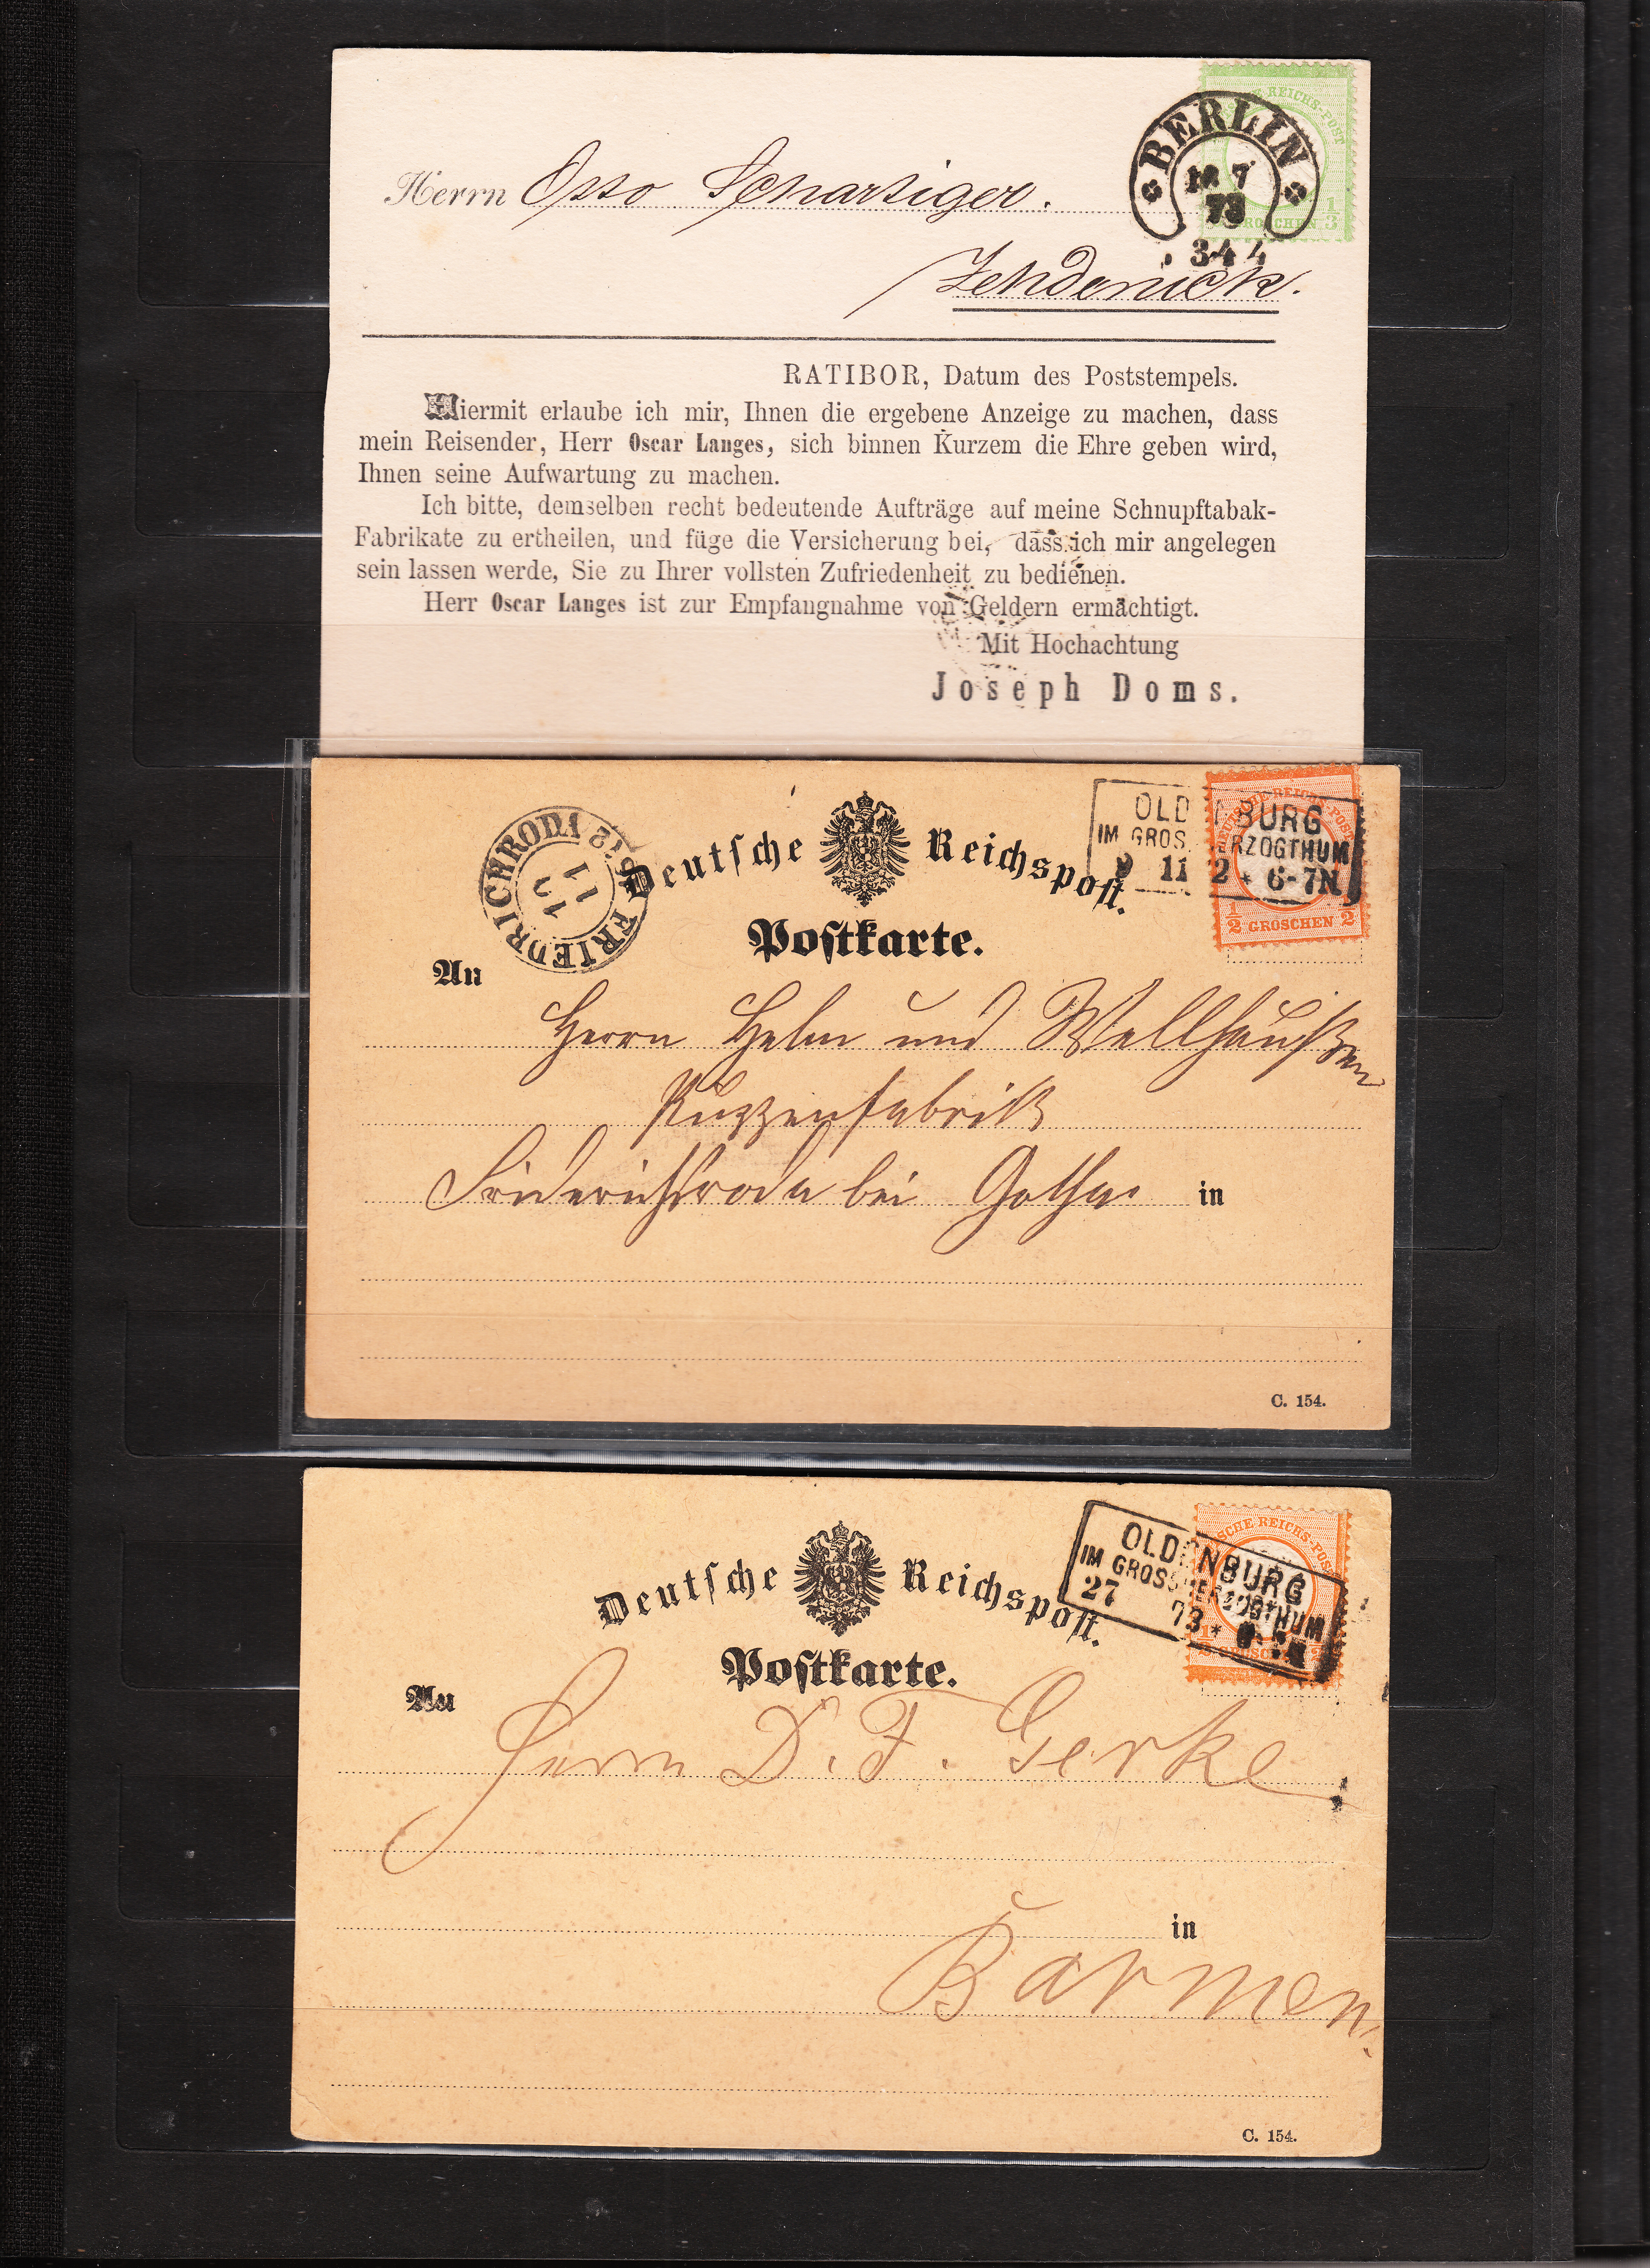 DEUTSCHE REICHS-POST
BERLIN
18 7
73
3-4 N
1/3 GROSCHEN 1/3
Herrn Otto Schartiger.
Zehdenick.
RATIBOR, Datum des Poststempels.
Hiermit erlaube ich mir, Ihnen die ergebene Anzeige zu machen, dass
mein Reisender, Herr Oscar Langes, sich binnen Kurzem die Ehre geben wird,
Ihnen seine Aufwartung zu machen.
Ich bitte, demselben recht bedeutende Aufträge auf meine Schnupftabak-
Fabrikate zu ertheilen, und füge die Versicherung bei, dass ich mir angelegen
sein lassen werde, Sie zu Ihrer vollsten Zufriedenheit zu bedienen.
Herr Oscar Langes ist zur Empfangnahme von Geldern ermächtigt.
Mit Hochachtung
Joseph Doms.
FRIEDRICHRODA
11
Deutsche Reichspost.
Postkarte.
OLDENBURG
IM GROSSHERZOGTHUM
9 11 2 * 6-7N
DEUTSCHE REICHS-POST
1/2 GROSCHEN 1/2
An
Herrn Helm und Wellhaußen
Puppenfabrik
Friderichsroda bei Gotha in
C. 154.
Deutsche Reichspost.
Postkarte.
OLDENBURG
IM GROSSHERZOGTHUM
27 73 *
DEUTSCHE REICHS-POST
An
Herrn D. F. Gerke
in
Barmen.
C. 154.